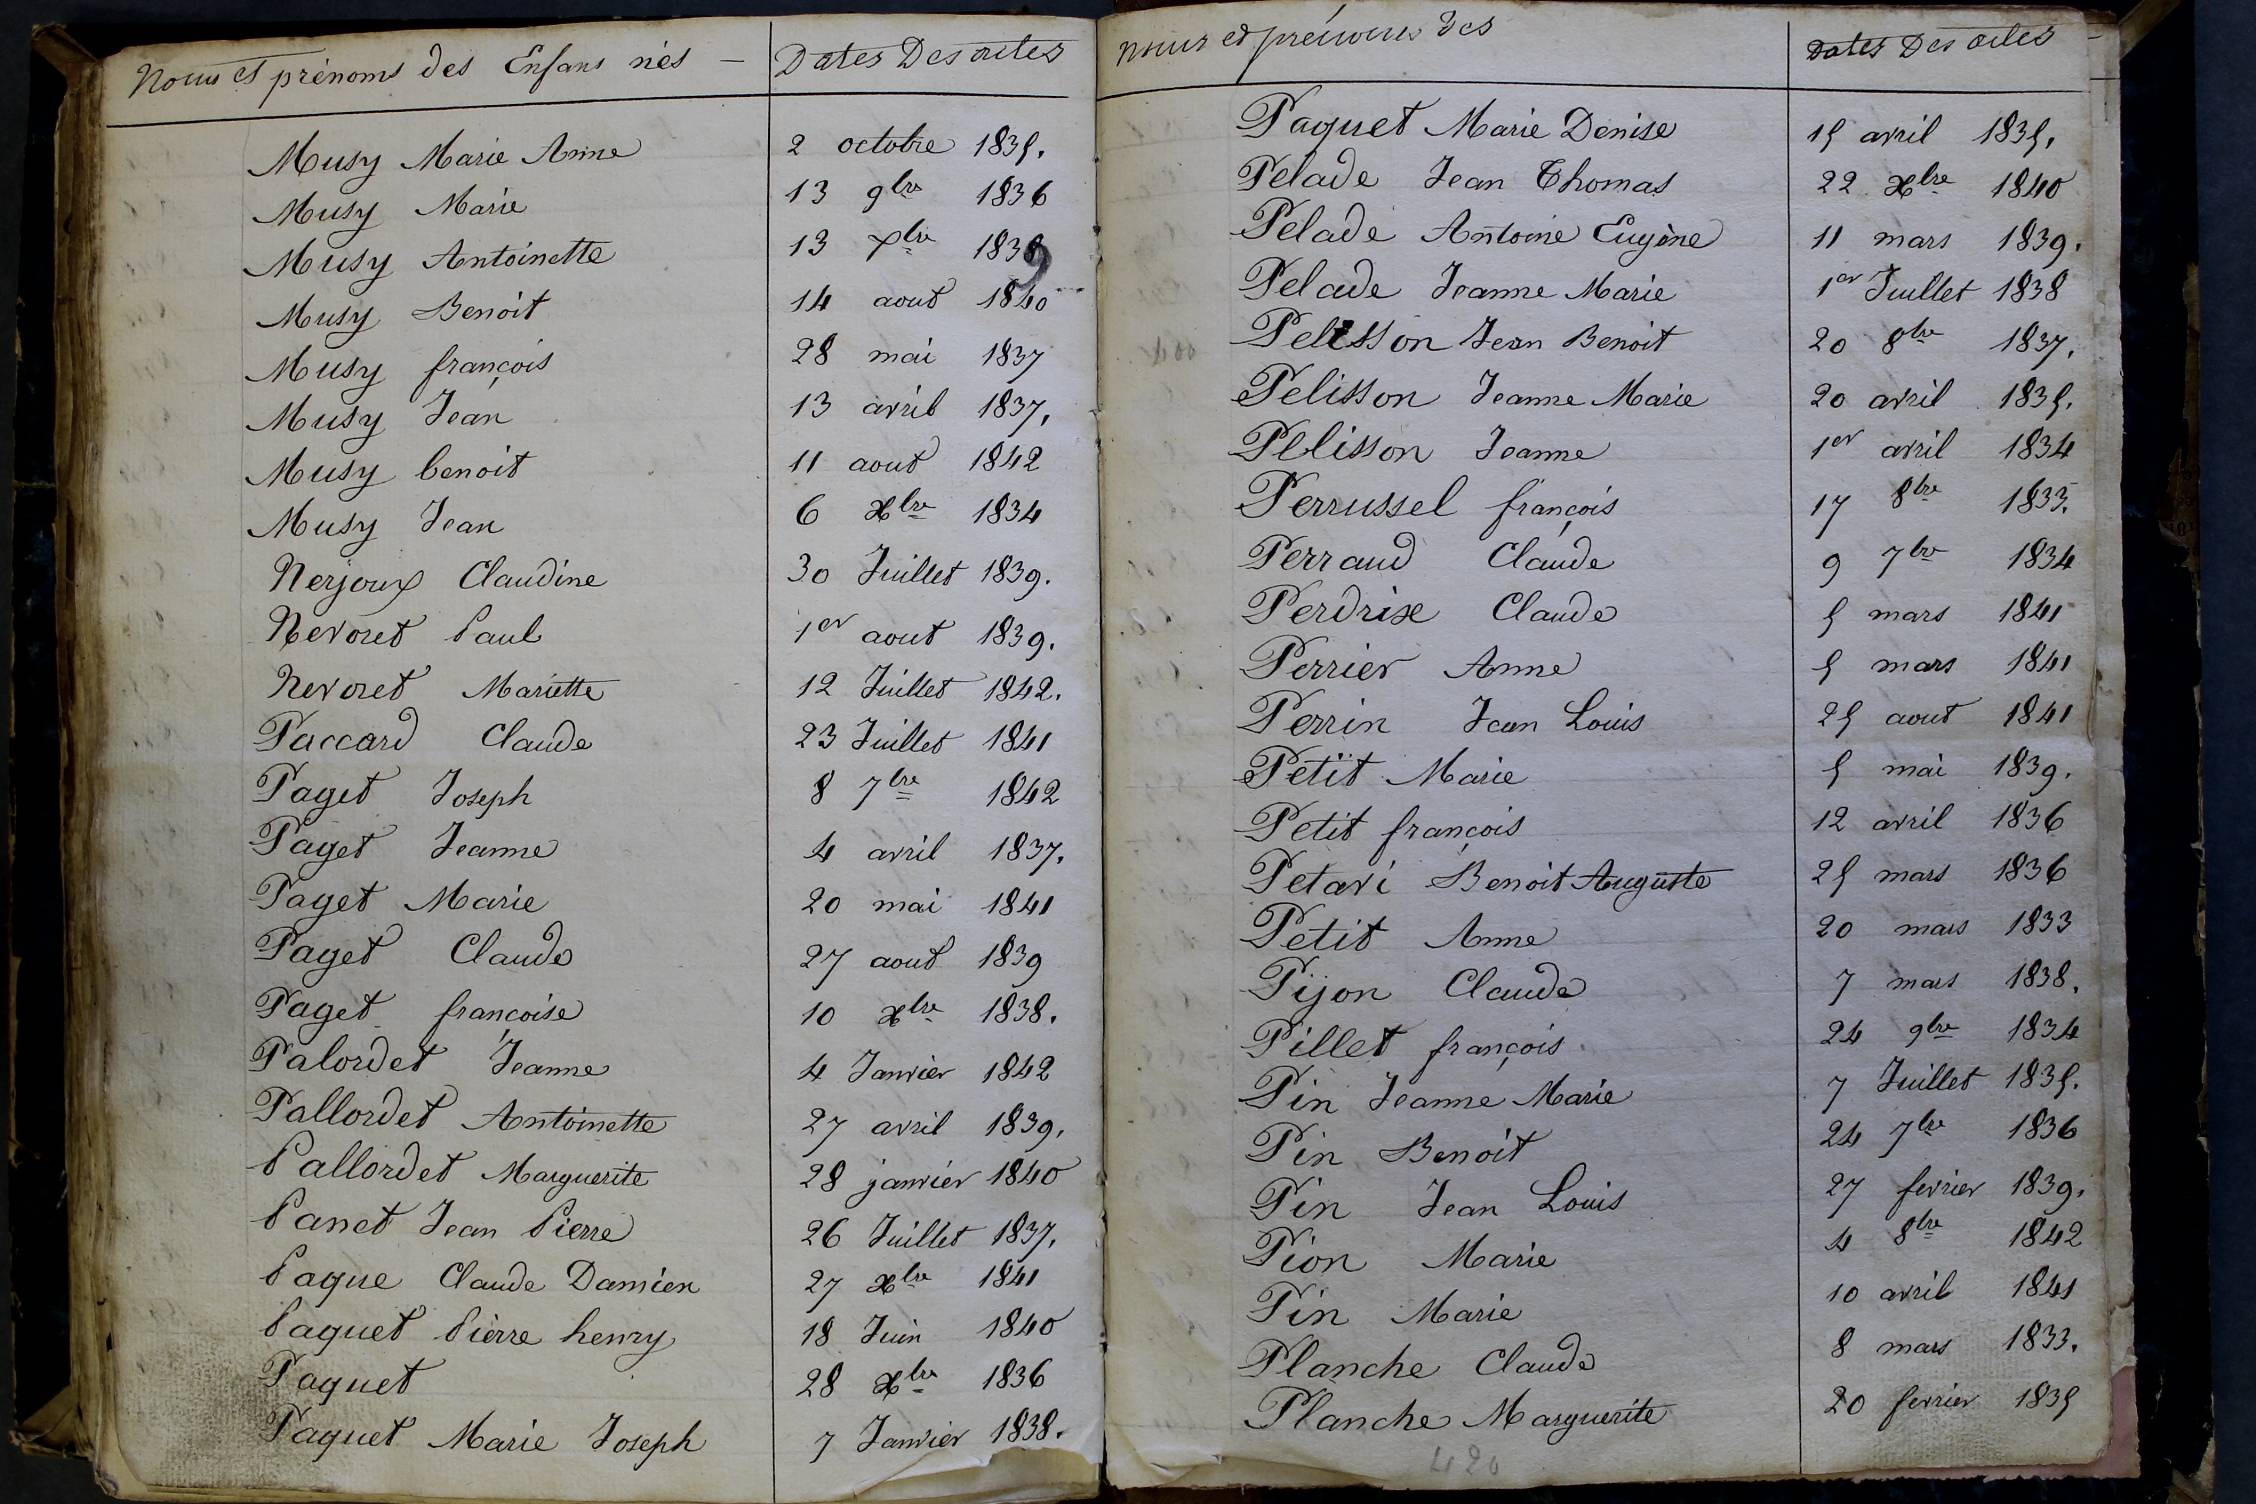 Noms et prénoms des Enfans nés — Dates Des actes
Musy Marie Anne 2 octobre 1835.
Musy Marie 13 9bre 1836
Musy Antoinette 13 Xbre 1839
Musy Benoit 14 aout 1840
Musy françois 28 mai 1837
Musy Jean 13 avril 1837.
Musy benoit 11 aout 1842
Musy Jean 6 Xbre 1834
Nerjoux Claudine 30 Juillet 1839.
Nevoret Paul 1er aout 1839.
Nevoret Mariette 12 Juillet 1842.
Paccard Claude 23 Juillet 1841
Paget Joseph 8 7bre 1842
Paget Jeanne 4 avril 1837.
Paget Marie 20 mai 1841
Paget Claude 27 aout 1839
Paget françoise 10 Xbre 1838.
Palordet Jeanne 4 Janvier 1842
Pallordet Antoinette 27 avril 1839.
Pallordet Marguerite 28 janvier 1840
Panet Jean Pierre 26 Juillet 1837.
Paque Claude Damien 27 Xbre 1841
Paquet Pierre henry 18 Juin 1840
Paquet 28 Xbre 1836
Paquet Marie Joseph 7 Janvier 1838.
Noms et prénoms des Dates Des actes —
Paquet Marie Denise 15 avril 1835.
Pelade Jean Thomas 22 Xbre 1840
Pelade Antoine Eugène 11 mars 1839.
Pelade Jeanne Marie 1er Juillet 1838
Pelisson Jean Benoit 20 8bre 1837.
Pelisson Jeanne Marie 20 avril 1835.
Pelisson Jeanne 1er avril 1834
Perrussel françois 17 8bre 1833.
Perraud Claude 9 7bre 1834
Perdrix Claude 5 mars 1841
Perrier Anne 5 mars 1841
Perrin Jean Louis 25 aout 1841
Petit Marie 5 mai 1839.
Petit françois 12 avril 1836
Petavi Benoit Auguste 25 mars 1836
Petit Anne 20 mars 1833
Pijon Claude 7 mars 1838.
Pillet françois 24 9bre 1834
Pin Jeanne Marie 7 Juillet 1835.
Pin Benoit 24 7bre 1836
Pin Jean Louis 27 fevrier 1839.
Pion Marie 4 8bre 1842
Pin Marie 10 avril 1841
Planche Claude 8 mars 1833.
Planche Marguerite 20 fevrier 1835
420